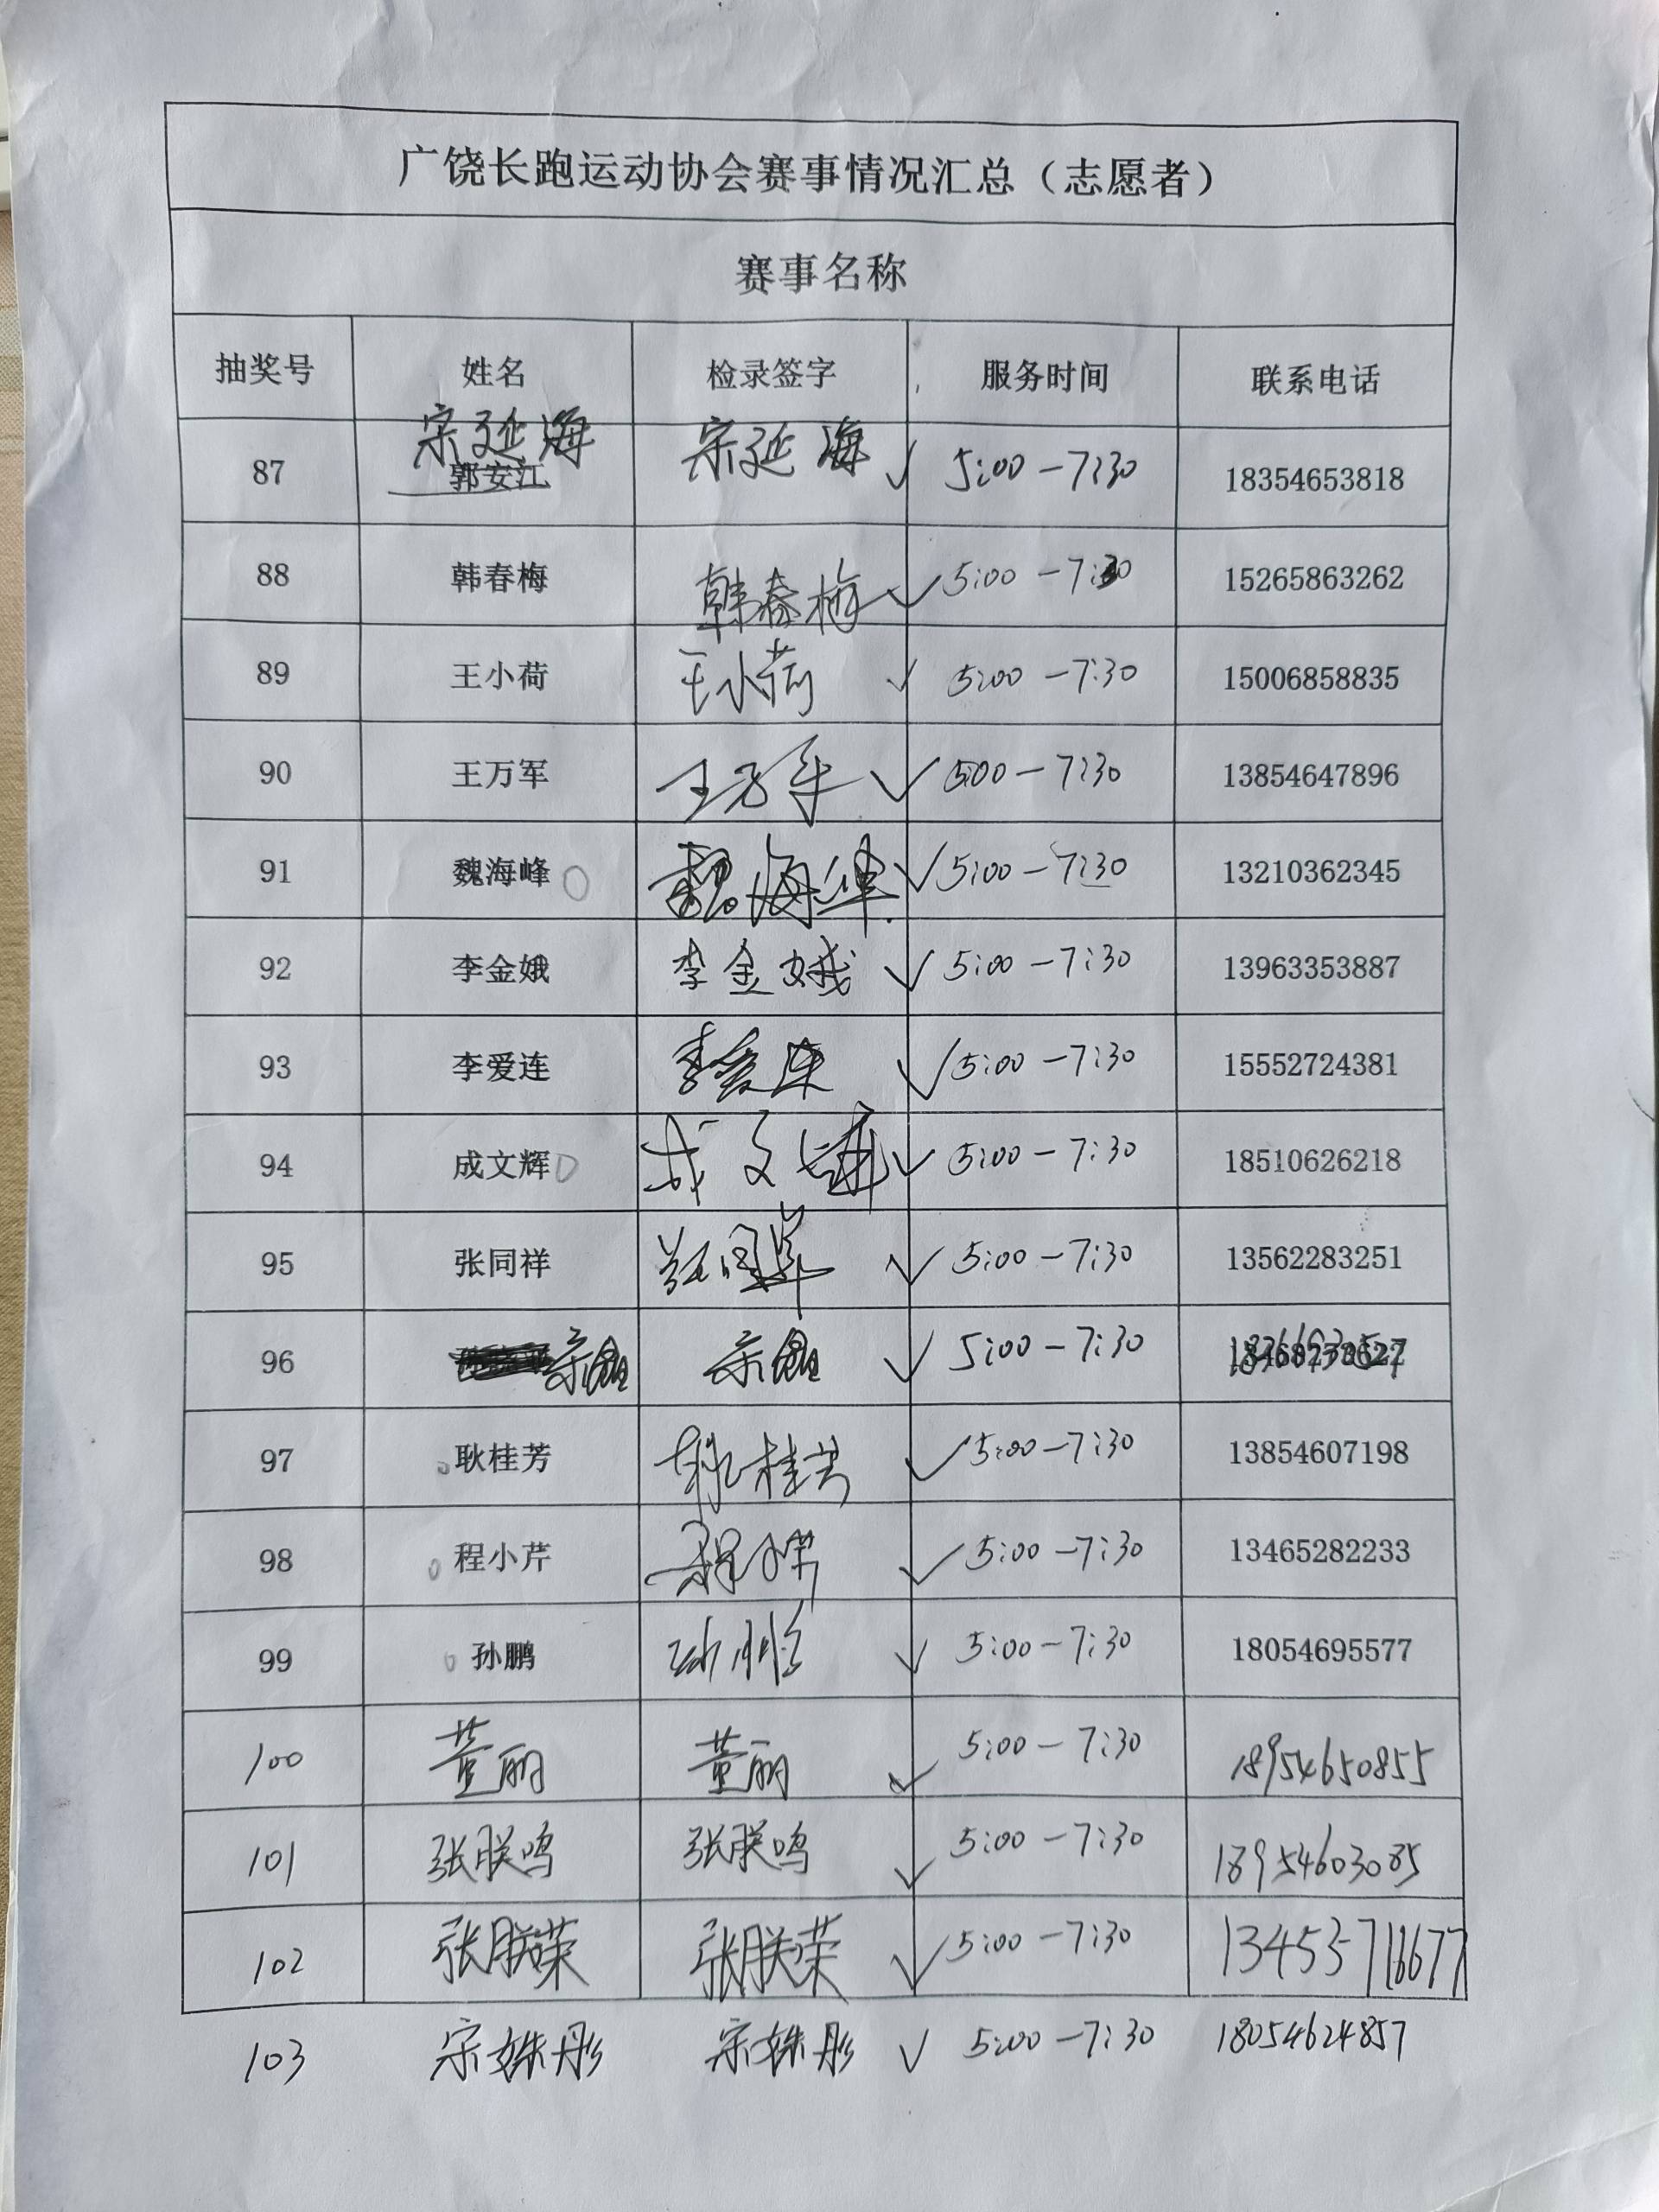 广饶长跑运动协会赛事情况汇总（志愿者）
赛事名称
抽奖号 姓名 检录签字 服务时间 联系电话
87 宋延海 郭安江 宋延海 ✓ 5:00-7:30 18354653818
88 韩春梅 韩春梅 ✓ 5:00-7:30 15265863262
89 王小荷 王小荷 ✓ 5:00-7:30 15006858835
90 王万军 王万军 ✓ 5:00-7:30 13854647896
91 魏海峰 魏海峰 ✓ 5:00-7:30 13210362345
92 李金娥 李金娥 ✓ 5:00-7:30 13963353887
93 李爱连 李爱连 ✓ 5:00-7:30 15552724381
94 成文辉 成文辉 ✓ 5:00-7:30 18510626218
95 张同祥 张同祥 ✓ 5:00-7:30 13562283251
96 ✓ 5:00-7:30
97 耿桂芳 耿桂芳 ✓ 5:00-7:30 13854607198
98 程小芹 程小芹 ✓ 5:00-7:30 13465282233
99 孙鹏 孙鹏 ✓ 5:00-7:30 18054695577
100 董丽 董丽 ✓ 5:00-7:30 18954650855
101 张朕鸣 张朕鸣 ✓ 5:00-7:30 18954603085
102 张朕荣 张朕荣 ✓ 5:00-7:30 13455718677
103 宋姝彤 宋姝彤 ✓ 5:00-7:30 18054624857